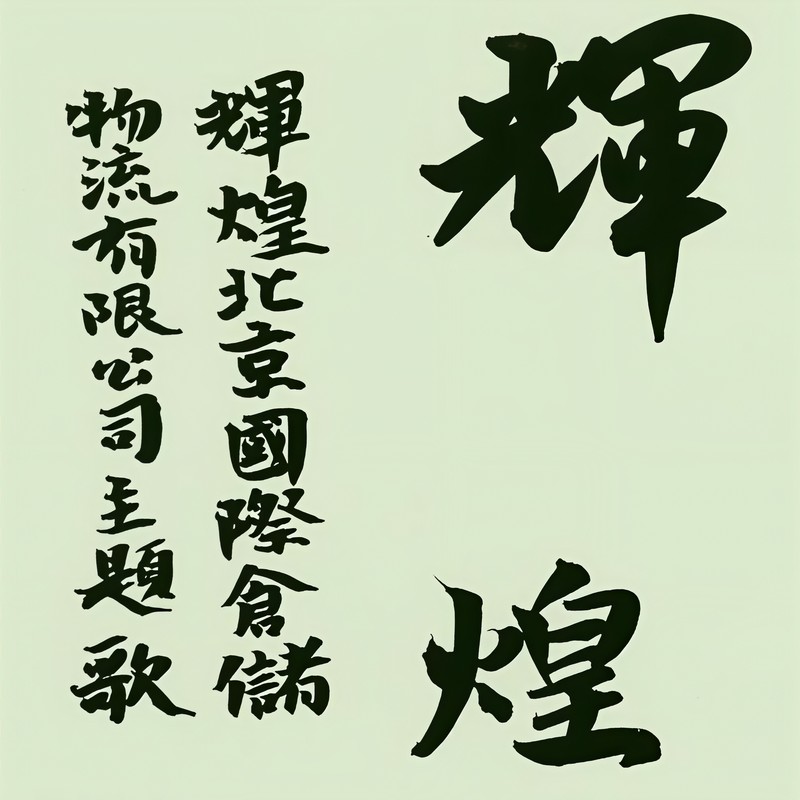 輝煌
輝煌北京國際倉儲
物流有限公司主題歌